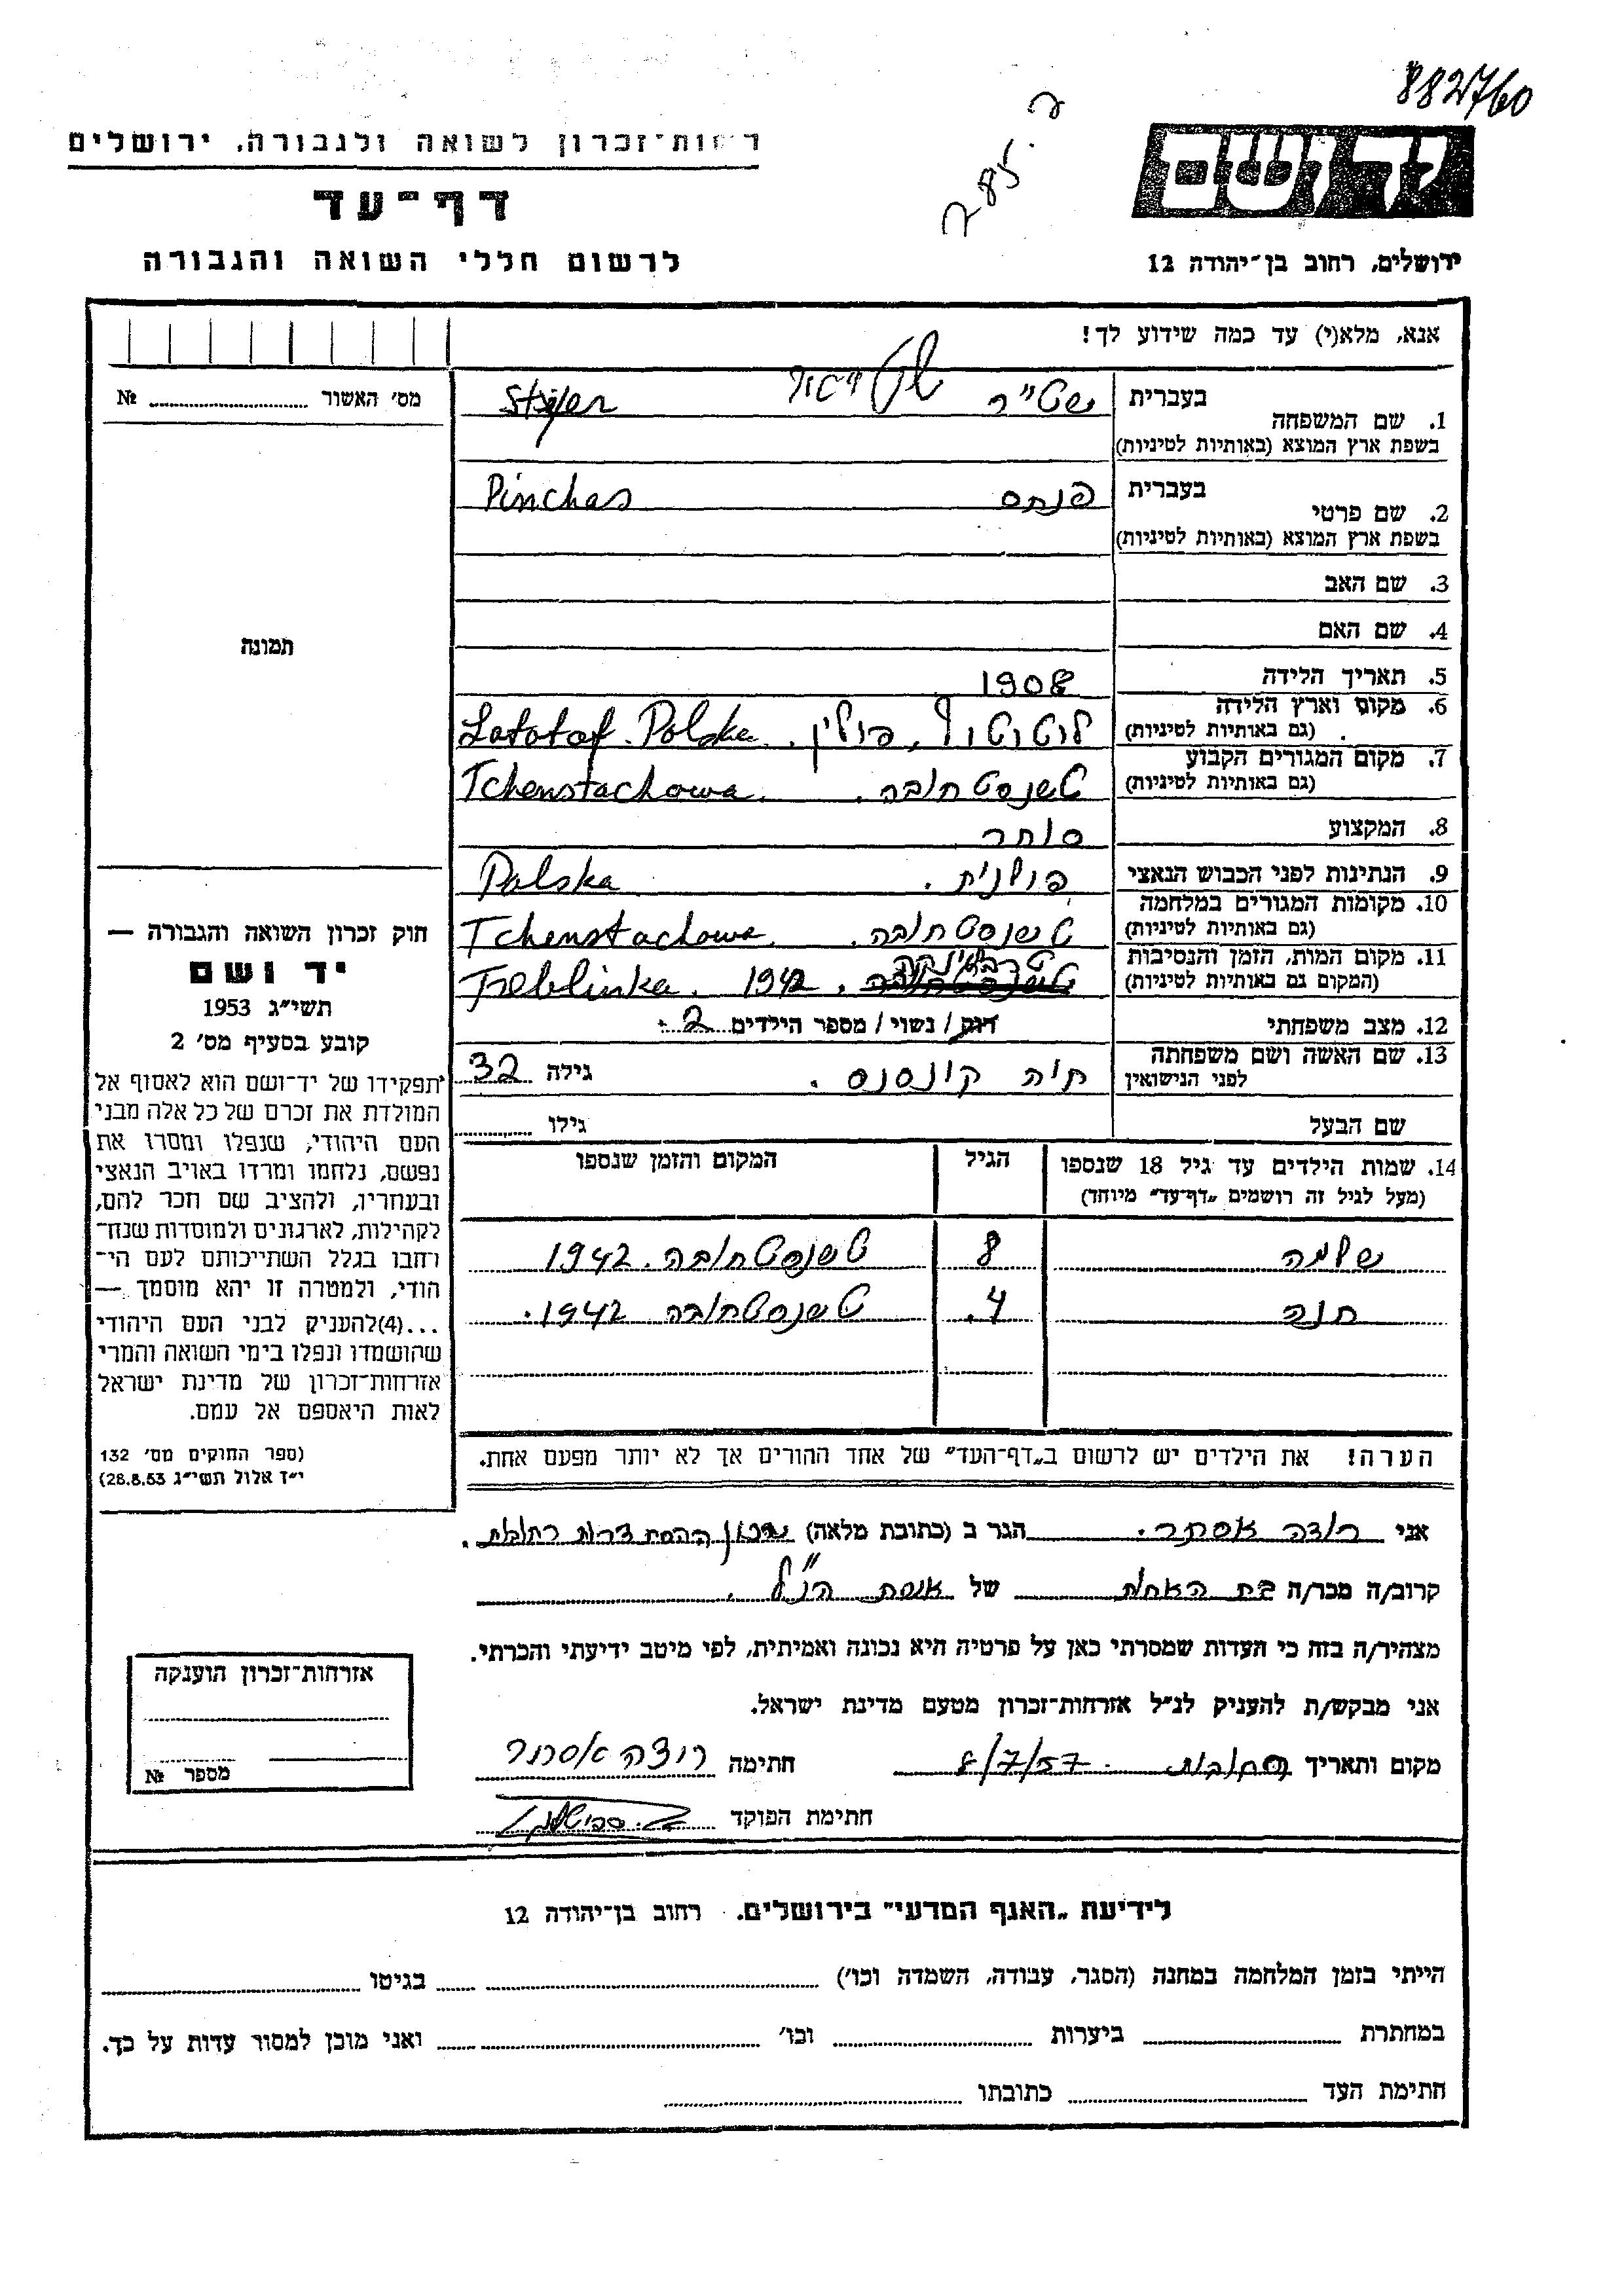 882760
רשות־זכרון לשואה ולגבורה. ירושלים
דף־עד
לרשום חללי השואה והגבורה
יד ושם
ירושלים, רחוב בן־יהודה 12
אנא, מלא(י) עד כמה שידוע לך!
מס׳ האשור № ........
1. שם המשפחה בעברית שט״ר
בשפת ארץ המוצא (באותיות לטיניות)
2. שם פרטי בעברית פנחס Pinchas
בשפת ארץ המוצא (באותיות לטיניות)
3. שם האב
4. שם האם
תמונה
5. תאריך הלידה 1908
6. מקום וארץ הלידה לוטוטוף, פולין. Lototof. Polska
(גם באותיות לטיניות)
7. מקום המגורים הקבוע טשנסטחובה. Tchenstachowa.
(גם באותיות לטיניות)
8. המקצוע סוחר
9. הנתינות לפני הכבוש הנאצי פולנית. Polska
10. מקומות המגורים במלחמה טשנסטחובה. Tchenstachowa.
(גם באותיות לטיניות)
11. מקום המות, הזמן והנסיבות טרבלינקה. 1942 Treblinka.
(המקום גם באותיות לטיניות)
12. מצב משפחתי רווק/נשוי/ מספר הילדים 2.
13. שם האשה ושם משפחתה חיה קונסנס. גילה 32
לפני הנישואין
שם הבעל גילו
14. שמות הילדים עד גיל 18 שנספו הגיל המקום והזמן שנספו
(מעל לגיל זה רושמים „דף־עד״ מיוחד)
שלמה 8 טשנסטחובה. 1942
חנה 4. טשנסטחובה 1942.
הערה! את הילדים יש לרשום ב„דף־העד״ של אחד ההורים אך לא יותר מפעם אחת.
חוק זכרון השואה והגבורה —
יד ושם
תשי״ג 1953
קובע בסעיף מס׳ 2
תפקידו של יד־ושם הוא לאסוף אל
המולדת את זכרם של כל אלה מבני
העם היהודי, שנפלו ומסרו את
נפשם, נלחמו ומרדו באויב הנאצי
ובעוזריו, ולהציב שם וזכר להם,
לקהילות, לארגונים ולמוסדות שנח־
רובו בגלל השתייכותם לעם הי־
הודי, ולמטרה זו יהא מוסמך —
...(4) להעניק לבני העם היהודי
שהושמדו ונפלו בימי השואה והמרי
אזרחות־זכרון של מדינת ישראל
לאות היאספם אל עמם.
(ספר החוקים מס׳ 132
י״ז אלול תשי״ג 28.8.53)
אני רוצה אסתר. הגר ב (כתובת מלאה) שכון ההסתדרות רחובות.
קרוב/ה מכר/ה בת האחות של אשת הנ״ל.
מצהיר/ה בזה כי העדות שמסרתי כאן על פרטיה היא נכונה ואמיתית, לפי מיטב ידיעתי והכרתי.
אני מבקש/ת להעניק לנ״ל אזרחות־זכרון מטעם מדינת ישראל.
מקום ותאריך רחובות. 8/7/57 חתימה רוצה אסתר
חתימת הפוקד
אזרחות־זכרון הוענקה
מספר №
לידיעת „האגף המדעי״ בירושלים. רחוב בן־יהודה 12
הייתי בזמן המלחמה במחנה (הסגר, עבודה, השמדה וכו׳) ........ בגיטו ........
במחתרת ........ ביערות ........ וכו׳ ........ ואני מוכן למסור עדות על כך.
חתימת העד ........ כתובתו ........